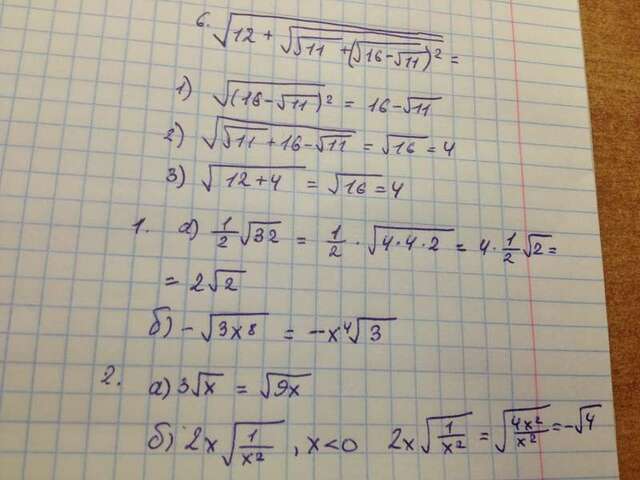 6. √(12 + √(√11 + (√(16-√11))²)) =
1) √(16-√11)² = 16-√11
2) √(√11+16-√11) = √16 = 4
3) √(12+4) = √16 = 4
1. а) 1/2 √32 = 1/2 · √(4·4·2) = 4·1/2 √2 =
= 2√2
б) -√(3x⁸) = -x⁴√3
2. а) 3√x = √(9x)
б) 2x√(1/x²), x<0 2x√(1/x²) = √(4x²/x²) = -√4